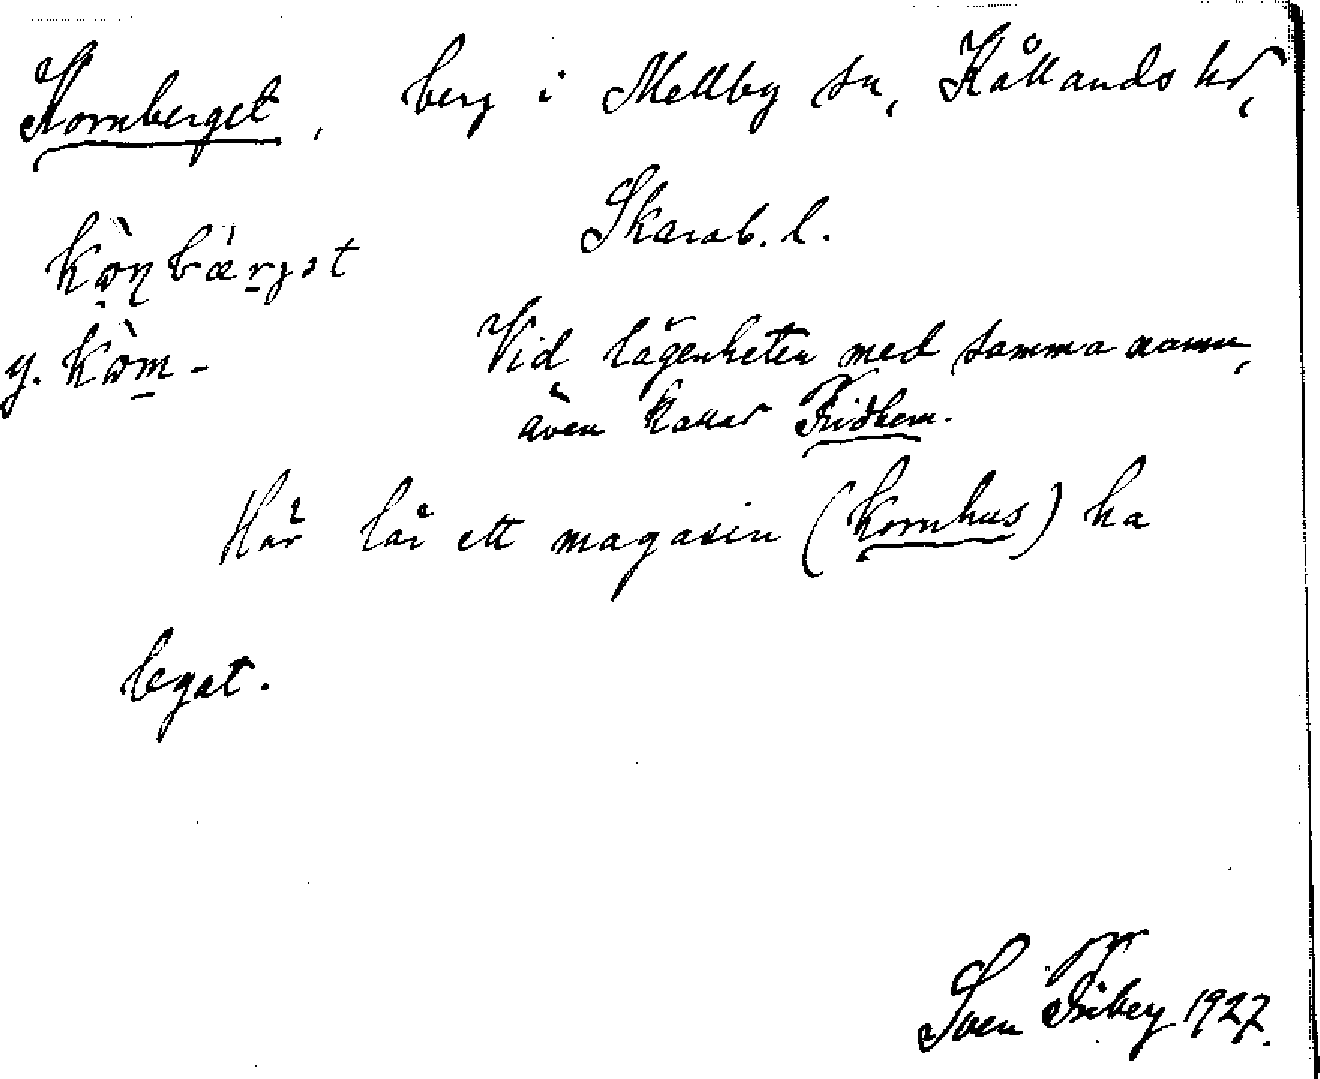 Kornberget, berg i Mellby sn, Kållands hd,
Skarab. l.
kòɳbǽrjət
y. kòm-
Vid lägenheten med samma namn,
även kallad Fridhem.
Här lär ett magasin (kornhus) ha
legat.
Sven Friberg 1927.